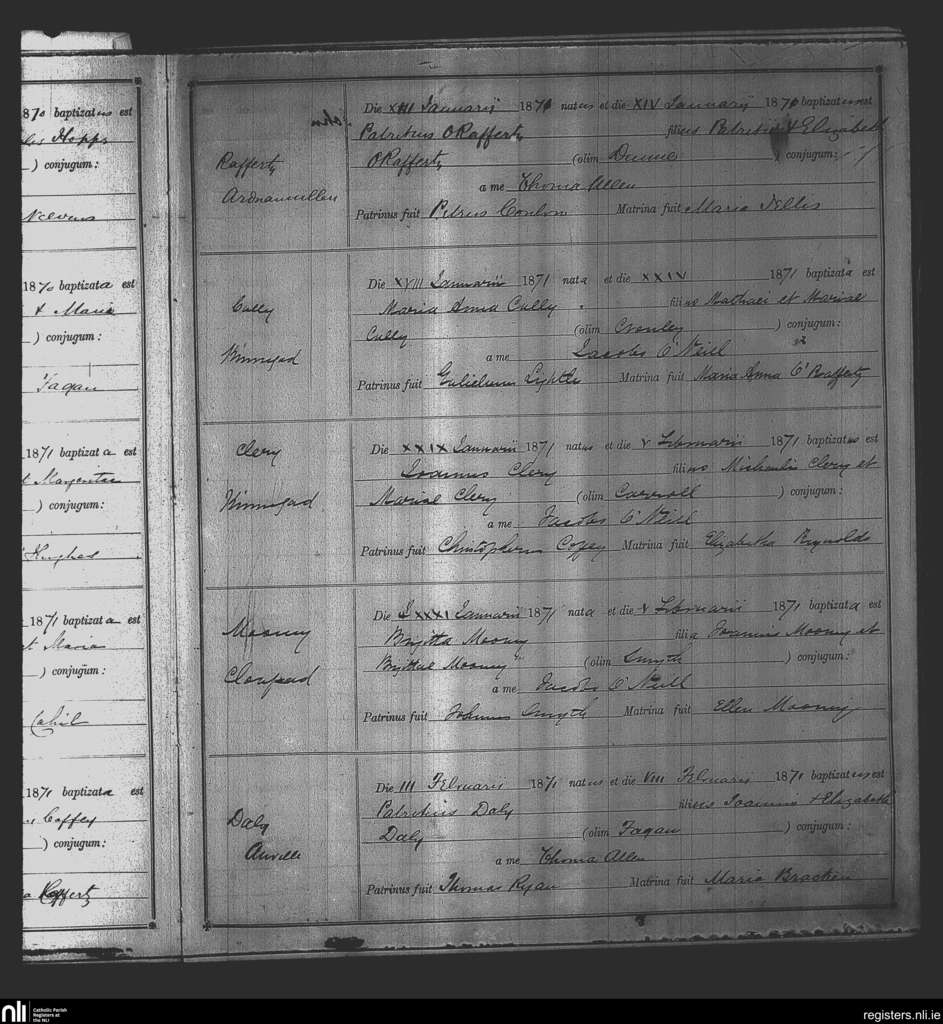 1870 baptizatus est
Hopps
) conjugum:
Nevens
1870 baptizata est
+ Maria
) conjugum:
Fagan
1871 baptizata est
t Margeritae
) conjugum:
Hughes
1871 baptizata est
t Maria
) conjugum:
Cahil
1871 baptizata est
Coffey
) conjugum:
a Rafferty
Rafferty
Ardnamullen
John
Die XIII Januarii 1871 natus et die XIV Januarii 1871 baptizatus est
Patritius O Rafferty filius Patritii + Elizabeth
O Rafferty (olim Dunne ) conjugum:
a me Thoma Allen
Patrinus fuit Petrus Conlon Matrina fuit Maria Nellis
Cully
Kinnegad
Die XVIII Januarii 1871 nata et die XXIV 1871 baptizata est
Maria Anna Cully filius Mathaei et Mariae
Cully (olim Cronley ) conjugum:
a me Jacobo O'Neill
Patrinus fuit Gulielmus Lightle Matrina fuit Maria Anna O'Rafferty
Clery
Kinnegad
Die XXIX Januarii 1871 natus et die V Februarii 1871 baptizatus est
Joannes Clery filius Michaelis Clery et
Mariae Clery (olim Carroll ) conjugum:
a me Jacobo O'Neill
Patrinus fuit Christopherus Coffey Matrina fuit Elizabetha Reynolds
Mooney
Clonfad
Die XXXI Januarii 1871 nata et die V Februarii 1871 baptizata est
Brigitta Mooney filia Joannis Mooney et
Brigittae Mooney (olim Smyth ) conjugum:
a me Jacobo O'Neill
Patrinus fuit Joannes Smyth Matrina fuit Ellen Mooney
Daly
Anville
Die III Februarii 1871 natus et die VIII Februarii 1871 baptizatus est
Patritius Daly filius Joannis + Elizabeth
Daly (olim Fagan ) conjugum:
a me Thoma Allen
Patrinus fuit Thomas Ryan Matrina fuit Maria Bracken
nli
Catholic Parish
Registers at
the NLI
registers.nli.ie